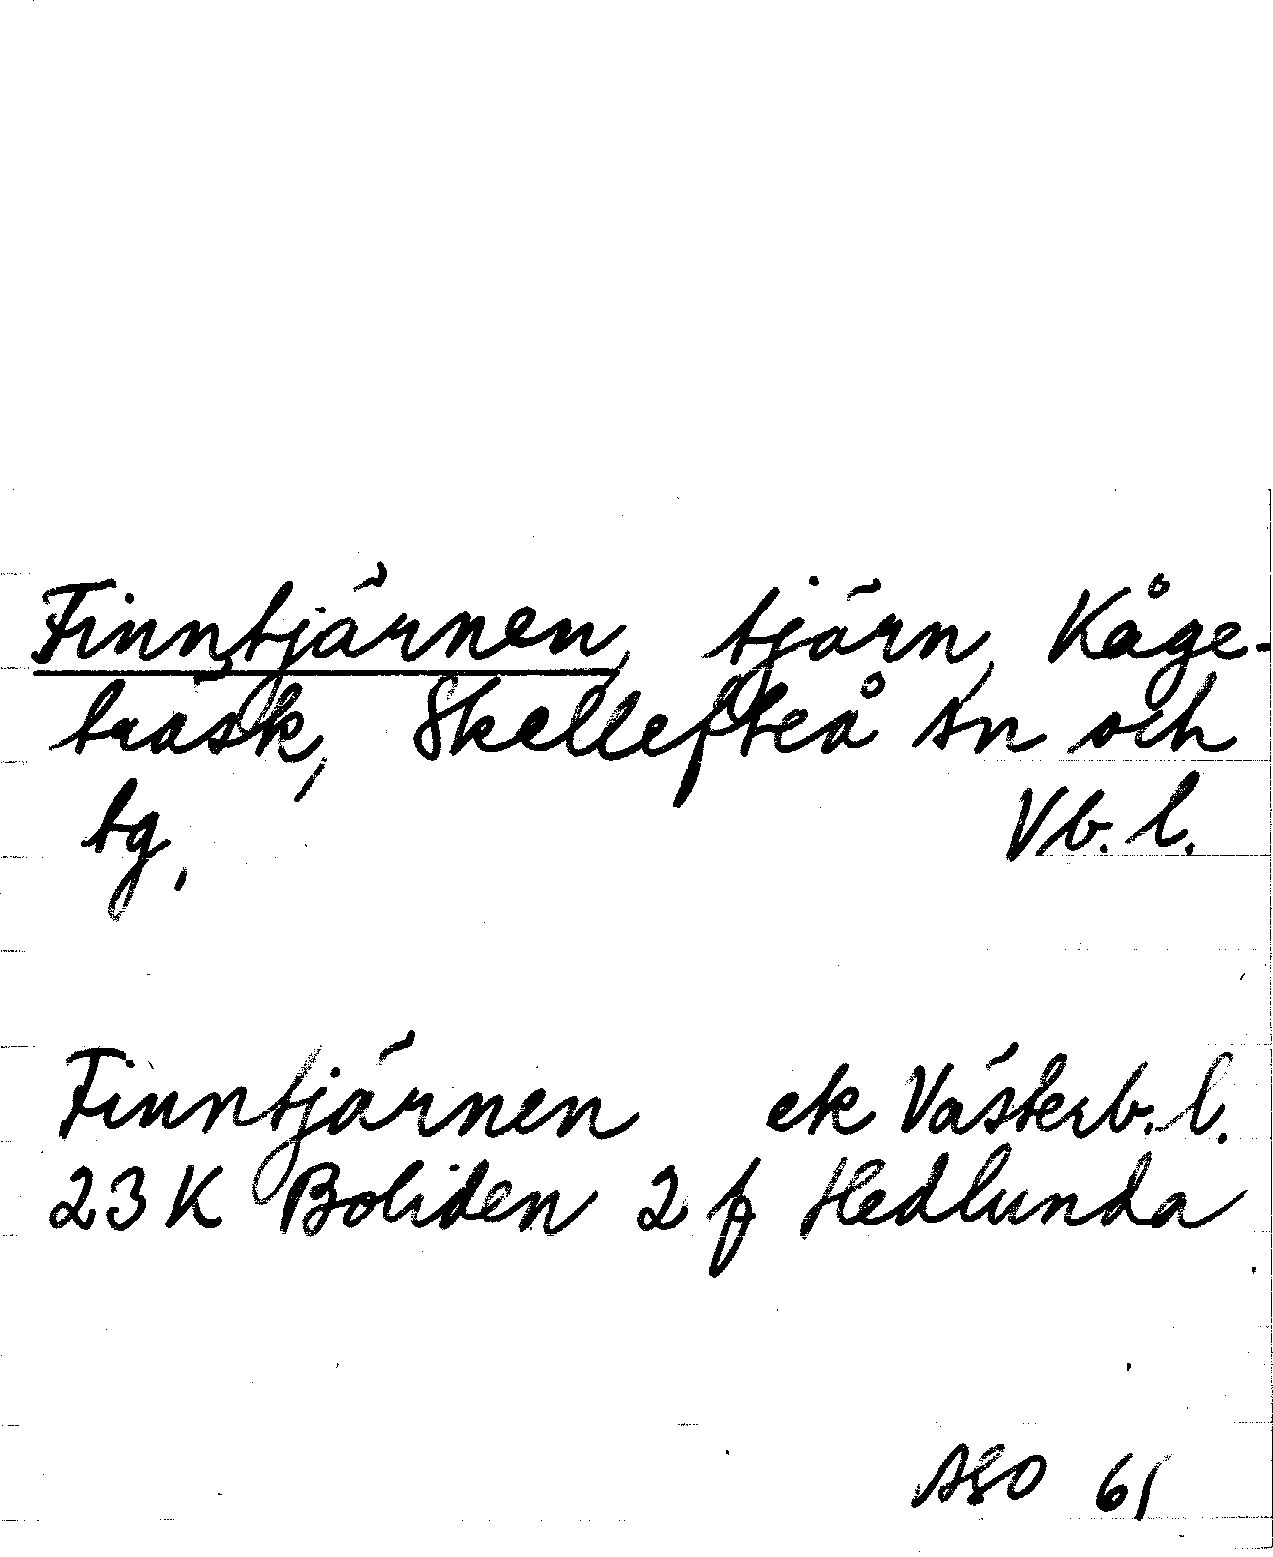 Finntjärnen, tjärn, Kåge-
träsk, Skellefteå sn och
tg,
Vb. l.
Finntjärnen ek Västerb. l.
23 K Boliden 2 f Hedlunda
ASO 61